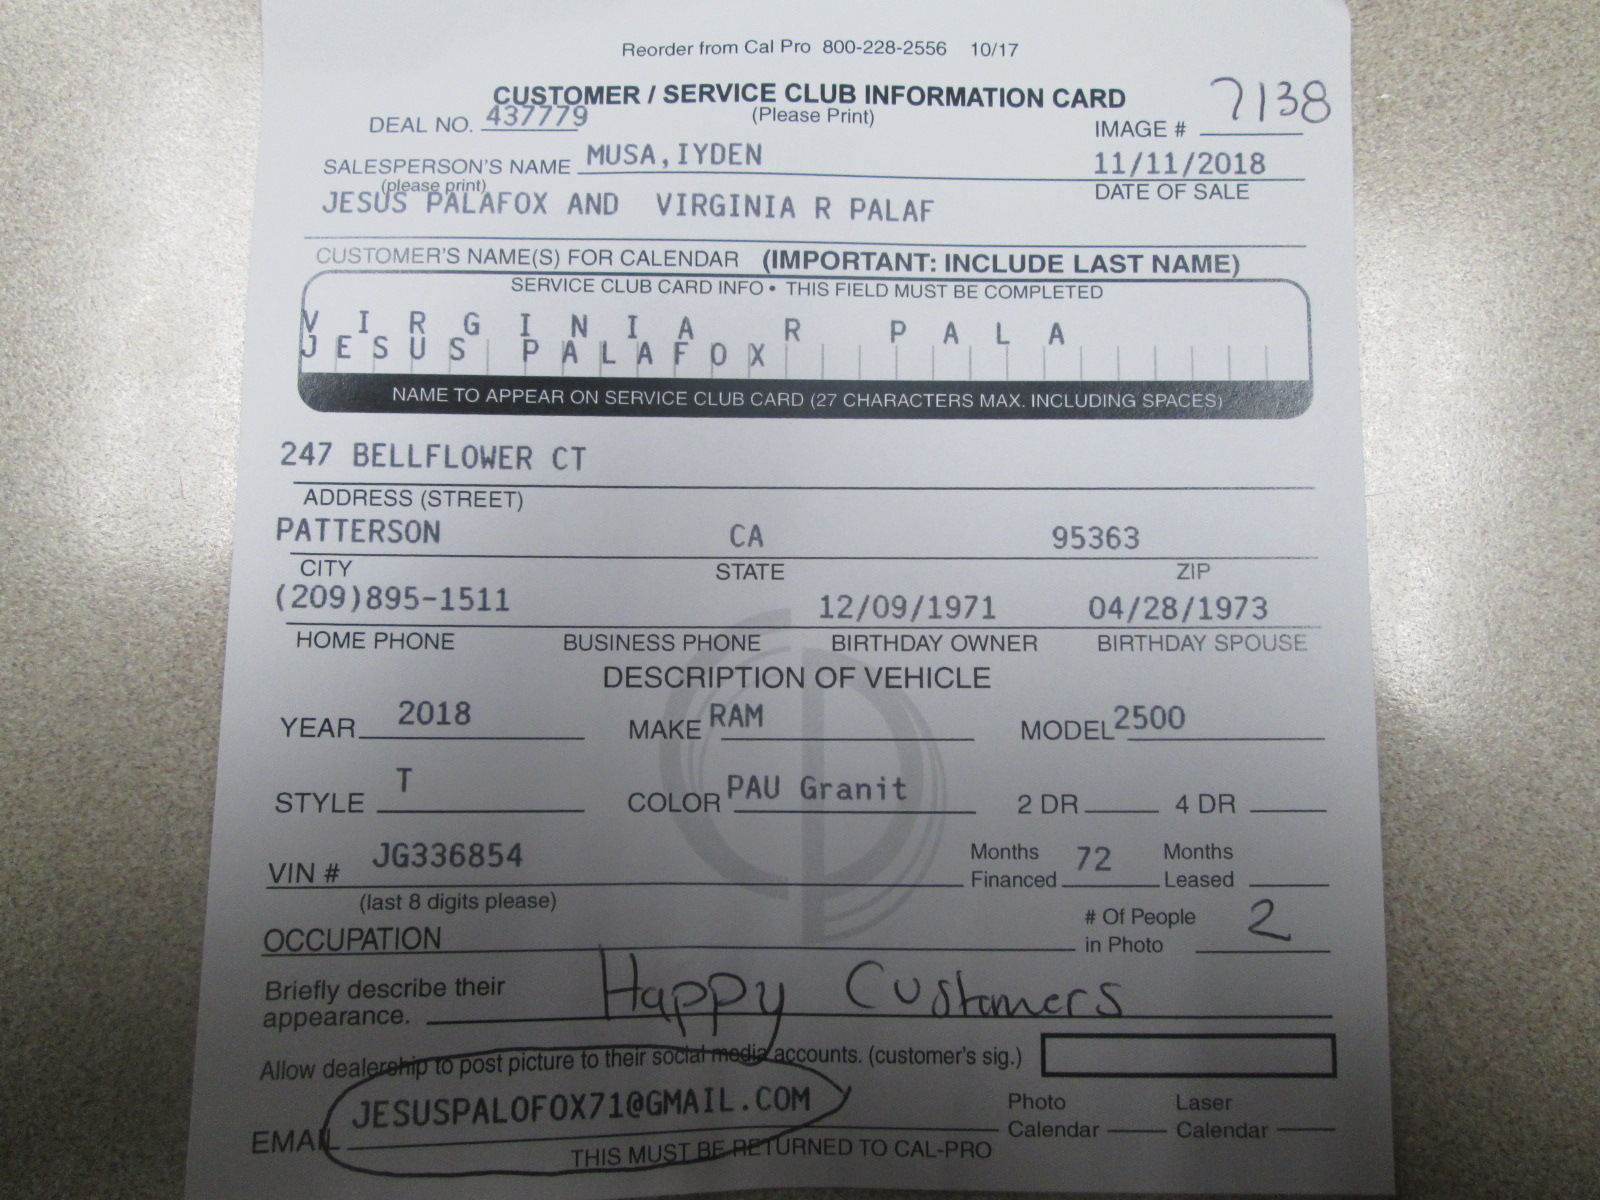 Reorder from Cal Pro 800-228-2556 10/17
CUSTOMER / SERVICE CLUB INFORMATION CARD
(Please Print)
DEAL NO. 437779
IMAGE # 7138
SALESPERSON'S NAME MUSA,IYDEN
(please print)
11/11/2018
DATE OF SALE
JESUS PALAFOX AND VIRGINIA R PALAF
CUSTOMER'S NAME(S) FOR CALENDAR (IMPORTANT: INCLUDE LAST NAME)
SERVICE CLUB CARD INFO • THIS FIELD MUST BE COMPLETED
VIRGINIA R PALA
JESUS PALAFOX
NAME TO APPEAR ON SERVICE CLUB CARD (27 CHARACTERS MAX. INCLUDING SPACES)
247 BELLFLOWER CT
ADDRESS (STREET)
PATTERSON CA 95363
CITY STATE ZIP
(209)895-1511 12/09/1971 04/28/1973
HOME PHONE BUSINESS PHONE BIRTHDAY OWNER BIRTHDAY SPOUSE
DESCRIPTION OF VEHICLE
YEAR 2018 MAKE RAM MODEL 2500
STYLE T COLOR PAU Granit 2 DR 4 DR
VIN # JG336854 Months Financed 72 Months Leased
(last 8 digits please)
OCCUPATION # Of People in Photo 2
Briefly describe their appearance. Happy Customers
Allow dealership to post picture to their social media accounts. (customer's sig.)
EMAIL JESUSPALOFOX71@GMAIL.COM Photo Calendar Laser Calendar
THIS MUST BE RETURNED TO CAL-PRO